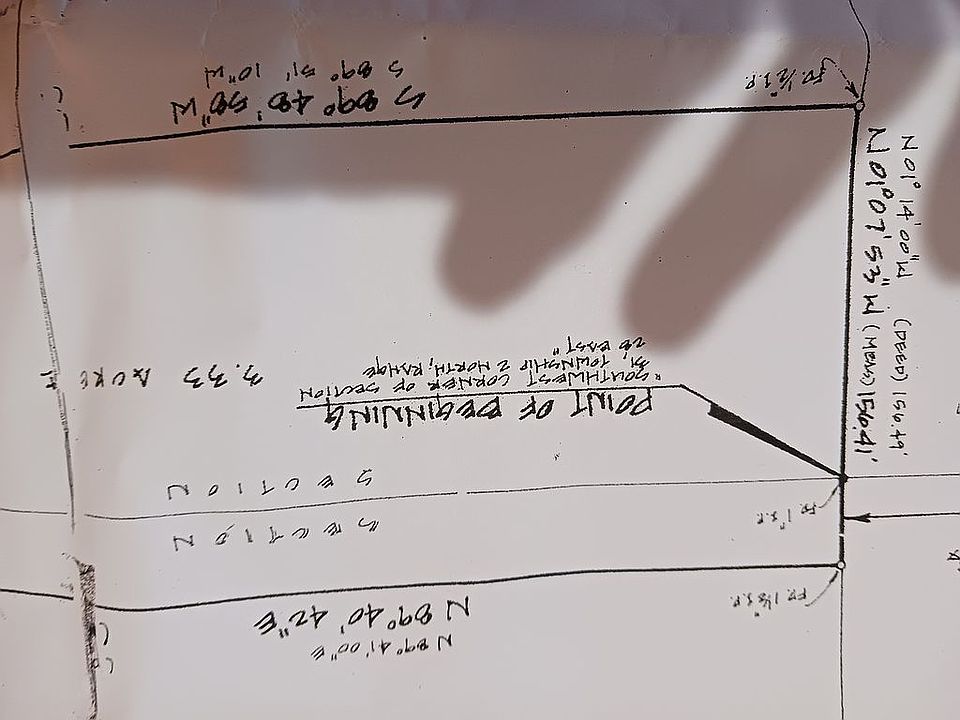 N 89° 41' 00"E
N 89° 40' 42"E
FD. 1½" I.P.
SECTION
SECTION
FD. 1" I.P.
POINT OF BEGINNING
"SOUTHWEST CORNER OF SECTION
31, TOWNSHIP 2 NORTH, RANGE
28 EAST"
3.33 ACRE
N 01° 07' 53" W (MEAS) 156.41'
N 01° 14' 00" W (DEED) 156.49'
FD. ½" I.P.
S 89° 48' 58" W
S 89° 51' 10" W